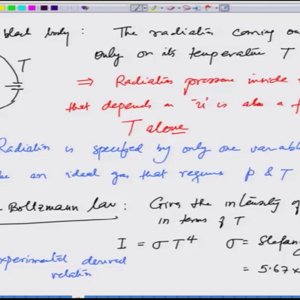 black body : The radiation coming ou
only on its temperature T
T
⇒ Radiation pressure inside
that depends on 'u' is also a f
T alone
Radiation is specified by only one variabl
ke an ideal gas that requires p & T
Boltzmann law : Gives the intensity of
in terms of T
I = σ T⁴ σ = Stefan
experimental derived = 5.67x
relation